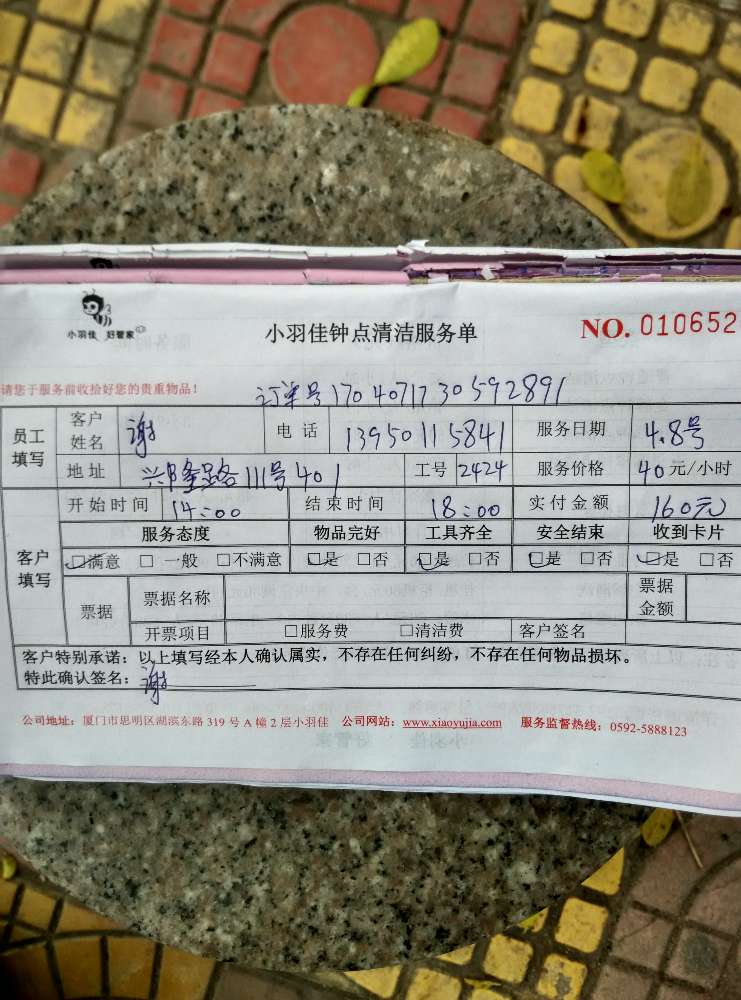 小羽佳 好管家
小羽佳钟点清洁服务单
NO. 010652
请您于服务前收拾好您的贵重物品!
订单号 1704071730592891
员工填写 客户姓名 谢 电话 13950115841 服务日期 4.8号
地址 兴隆路111号401 工号 2424 服务价格 40元/小时
客户填写 开始时间 14:00 结束时间 18:00 实付金额 160元
服务态度 物品完好 工具齐全 安全结束 收到卡片
☑满意 □一般 □不满意 ☑是 □否 ☑是 □否 ☑是 □否 ☑是 □否
票据 票据名称 票据金额
开票项目 □服务费 □清洁费 客户签名
客户特别承诺:以上填写经本人确认属实,不存在任何纠纷,不存在任何物品损坏。
特此确认签名:谢
公司地址:厦门市思明区湖滨东路 319 号 A 幢 2 层小羽佳 公司网站:www.xiaoyujia.com 服务监督热线:0592-5888123